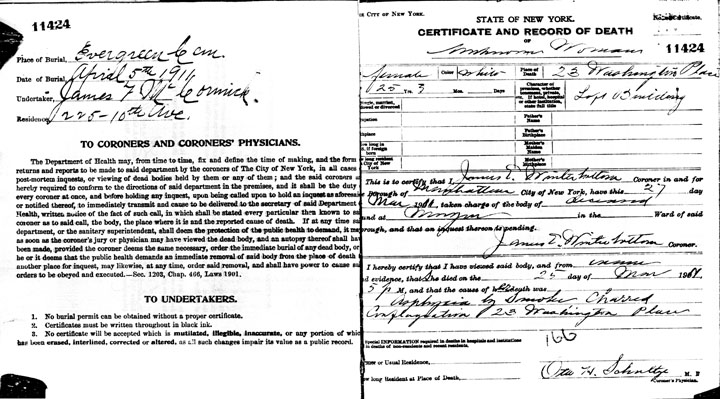 11424
Place of Burial, Evergreen Cem.
Date of Burial, April 5th 1911
Undertaker, James F. McCormick
Residence, 225-10th Ave.
TO CORONERS AND CORONERS' PHYSICIANS.
The Department of Health may, from time to time, fix and define the time of making, and the form
returns and reports to be made to said department by the coroners of The City of New York, in all cases
post-mortem inquests, or viewing of dead bodies held by them or any of them; and the said coroners a
hereby required to conform to the directions of said department in the premises, and it shall be the duty
every coroner at once, and before holding any inquest, upon being called upon to hold an inquest as aforesai
or notified thereof, to immediately transmit and cause to be delivered to the secretary of said Department
Health, written notice of the fact of such call, in which shall be stated every particular then known to sa
coroner as to said call, the body, the place where it is and the reported cause of death. If at any time sa
department, or the sanitary superintendent, shall deem the protection of the public health to demand, it ma
as soon as the coroner's jury or physician may have viewed the dead body, and an autopsy thereof shall ha
been made, provided the coroner deems the same necessary, order the immediate burial of any dead body, or
he or it deems that the public health demands an immediate removal of said body from the place of death
another place for inquest, may likewise, at any time, order said removal, and shall have power to cause su
orders to be obeyed and executed.—Sec. 1203, Chap. 466, Laws 1901.
TO UNDERTAKERS.
1. No burial permit can be obtained without a proper certificate.
2. Certificates must be written throughout in black ink.
3. No certificate will be accepted which is mutilated, illegible, inaccurate, or any portion of which
has been erased, interlined, corrected or altered, as all such changes impair its value as a public record.
THE CITY OF NEW YORK.
STATE OF NEW YORK.
Certificate.
CERTIFICATE AND RECORD OF DEATH
OF
Unknown Woman 11424
female Color White Place of Death 23 Washington Place
25 Yrs. Mos. Days
Character of premises, whether tenement, private, etc. If hotel, hospital or other institution, state full title
Loft Building
Single, married, widowed or divorced
Occupation
Father's Name
Birthplace
Father's Birthplace
How long in U.S. if foreign born
Mother's Maiden Name
How long resident in City of New York
Mother's Birthplace
This is to certify that I, James E. Winterbottom Coroner in and for
Borough of Manhattan City of New York, have this 27 day
Mar 1911, taken charge of the body of deceased
found at Morgue in the Ward of said
Borough, and that an inquest thereon is pending.
James E. Winterbottom Coroner.
I hereby certify that I have viewed said body, and from
and evidence, that she died on the 25 day of Mar 1911
5 P M, and that the cause of death was
Asphyxia by Smoke Charred
Conflagration 23 Washington Place
166
Special INFORMATION required in deaths in hospitals and institutions
and in deaths of non-residents and recent residents.
Former or Usual Residence,
How long Resident at Place of Death,
Otto H. Schultze M. D
Coroner's Physician.